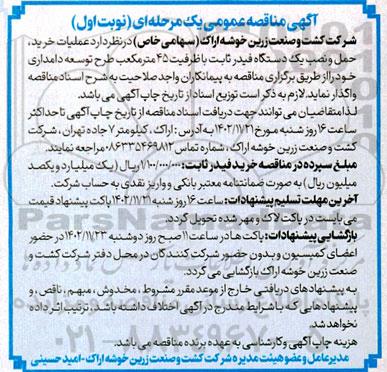 آگهی مناقصه عمومی یک مرحله ای (نوبت اول)
شرکت کشت و صنعت زرین خوشه اراک (سهامی خاص) در نظر دارد عملیات خرید،
حمل و نصب یک دستگاه فیدر ثابت با ظرفیت ۴۵ مترمکعب طرح توسعه دامداری
خود را از طریق برگزاری مناقصه به پیمانکاران واجد صلاحیت به شرح اسناد مناقصه
واگذار نماید. لازم به ذکر است توزیع اسناد از تاریخ چاپ آگهی می باشد.
لذا متقاضیان می توانند جهت دریافت اسناد مناقصه از تاریخ چاپ آگهی تا حداکثر
ساعت ۱۶ روز شنبه مورخ ۱۴۰۲/۱۱/۲۱ به آدرس: اراک، کیلومتر ۷ جاده تهران، شرکت
کشت و صنعت زرین خوشه اراک، شماره تماس ۰۸۶۳۳۵۴۶۹۸۱۲ مراجعه نمایند.
مبلغ سپرده در مناقصه خرید فیدر ثابت: ۱/۱۰۰/۰۰۰/۰۰۰ ریال (یک میلیارد و یکصد
میلیون ریال) به صورت ضمانتنامه معتبر بانکی و واریز نقدی به حساب شرکت.
آخرین مهلت تسلیم پیشنهادات: ساعت ۱۶ روز شنبه ۱۴۰۲/۱۱/۲۱ پاکت پیشنهاد قیمت
می بایست در پاکت لاک و مهر شده تحویل گردد.
بازگشایی پیشنهادات: پاکت ها در ساعت ۱۱ صبح روز دوشنبه ۱۴۰۲/۱۱/۲۳ در حضور
اعضای کمیسیون و بدون حضور شرکت کنندگان در محل دفتر شرکت کشت و
صنعت زرین خوشه اراک بازگشایی می گردد.
به پیشنهادهای دریافتی خارج از موعد مقرر مشروط، مخدوش، مبهم، ناقص، و
پیشنهادهایی که با شرایط مندرج در آگهی اختلاف داشته باشد، ترتیب اثر داده
نخواهد شد.
هزینه چاپ آگهی و کارشناسی به عهده برنده مناقصه می باشد.
مدیرعامل و عضو هیئت مدیره شرکت کشت و صنعت زرین خوشه اراک - امید حسینی